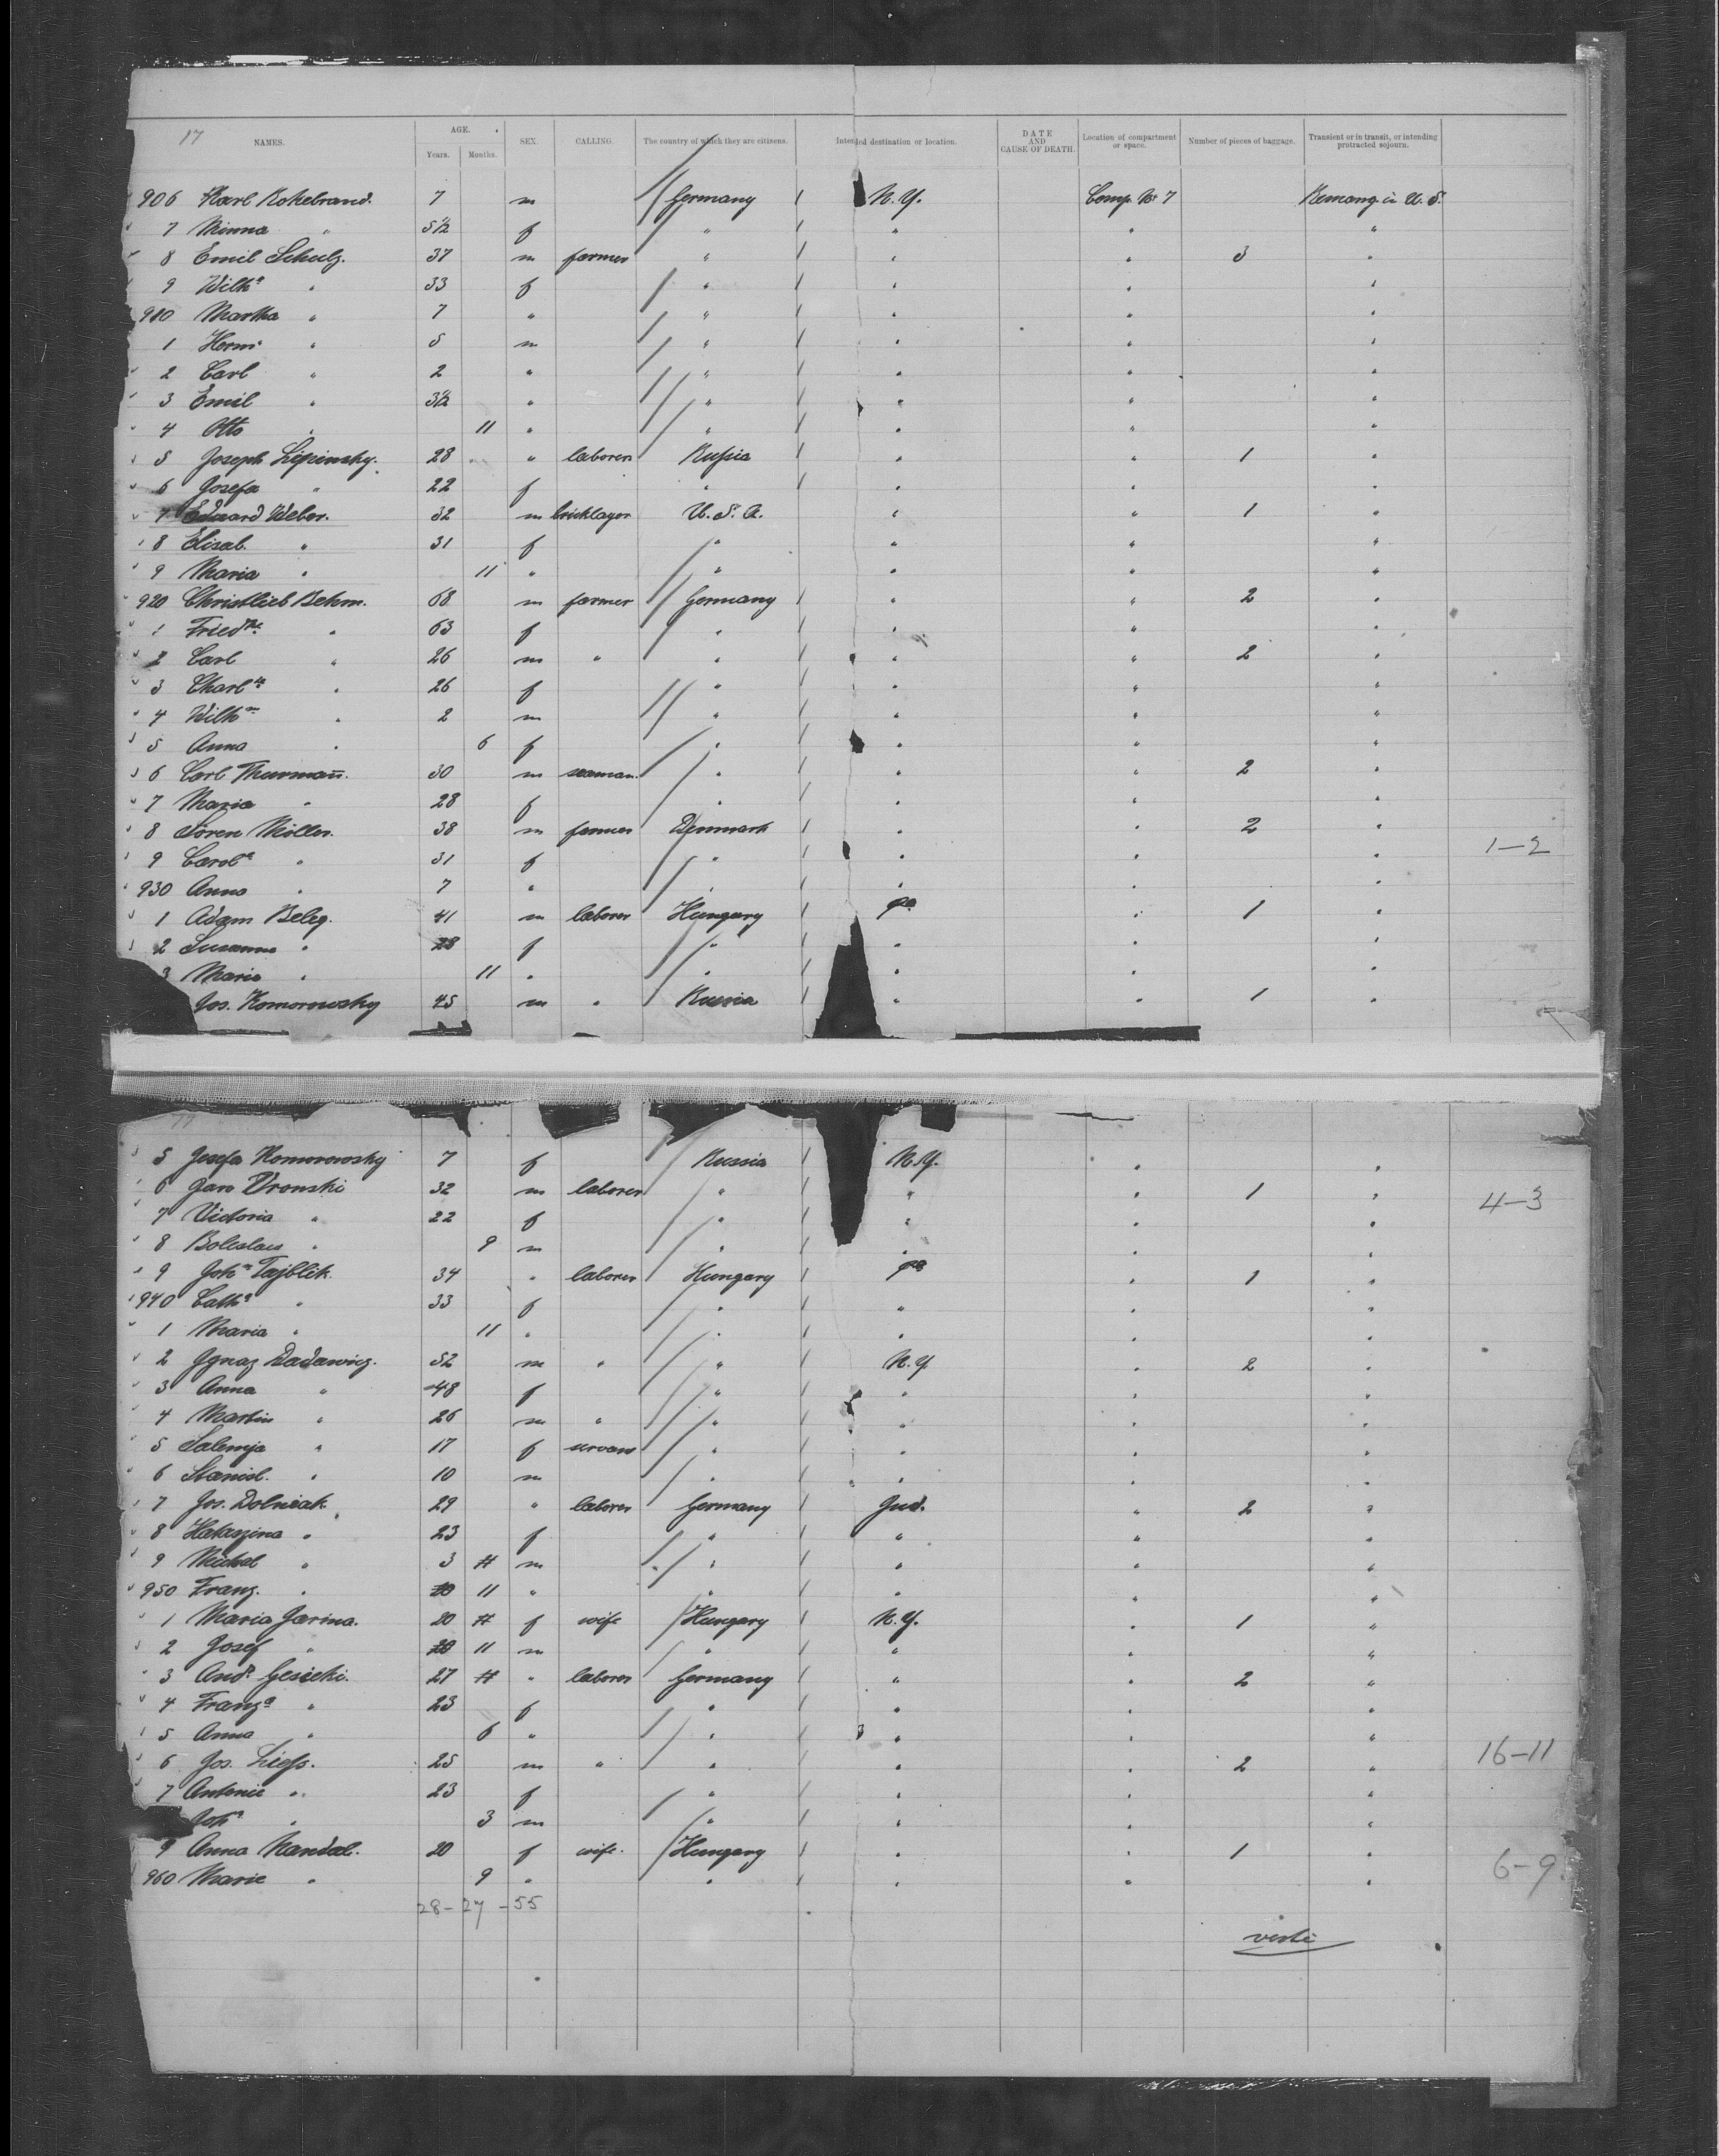 17
NAMES. AGE. Years. Months. SEX. CALLING. The country of which they are citizens. Intended destination or location. DATE AND CAUSE OF DEATH. Location of compartment or space. Number of pieces of baggage. Transient or in transit, or intending protracted sojourn.
906 Karl Kokebrand. 7 m Germany N.Y. Comp. No 7 Remang. in U.S.
7 Minna " 5½ f " " " "
8 Emil Schulz. 37 m farmer " " " 3 "
9 Wilha " 33 f " " " "
910 Martha " 7 " " " " "
1 Herm. " 5 m " " " "
2 Carl " 2 " " " " "
3 Emil " 3½ " " " " "
4 Otto " 11 " " " " "
5 Joseph Lipinsky. 28 " laborer Russia " " 1 "
6 Josefa " 22 f " " " "
7 Eduard Weber. 32 m bricklayer U.S.A. " " 1 "
8 Elisab. " 31 f " " " "
9 Maria " 11 " " " " "
920 Christlieb Behm. 68 m farmer Germany " " 2 "
1 Friedke " 63 f " " " "
2 Carl " 26 m " " " " 2 "
3 Charlte " 26 f " " " "
4 Wilhm " 2 m " " " "
5 Anna " 6 f " " " "
6 Carl Thurmañ. 30 m seaman " " " 2 "
7 Maria " 28 f " " " "
8 Sören Möller. 38 m farmer Denmark " " 2 "
9 Carola " 31 f " " " " 1–2
930 Anna " 7 " " " " "
1 Adam Beleg. 41 m laborer Hungary Pa " 1 "
2 Susanna " 28 f " " " "
3 Maria " 11 " " " " "
Jos. Komorowsky 45 m " Russia " " 1 "
5 Josefa Komorowsky 7 f Russia N.Y. " "
6 Jan Wronski 32 m laborer " " " 1 " 4–3
7 Victoria " 22 f " " " "
8 Boleslaus " 9 m " " " "
9 John Tajblik. 34 " laborer Hungary Pa " 1 "
940 Catha " 33 f " " " "
1 Maria " 11 " " " " "
2 Ignaz Dadawicz. 52 m " " N.Y " 2 "
3 Anna " 48 f " " " "
4 Martin " 26 m " " " " "
5 Salemja " 17 f servant " " " "
6 Stanisl. " 10 m " " " "
7 Jos. Dolniak 29 " laborer Germany Ind. " 2 "
8 Katarzina " 23 f " " " "
9 Michael " 3 m " " " "
950 Franz. " 11 " " " " "
1 Maria Jarina. 20 f wife Hungary N.Y. " 1 "
2 Josef " 11 m " " " "
3 Andr. Gesicki. 27 " laborer Germany " " 2 "
4 Franza " 23 f " " " "
5 Anna " 6 " " " " "
6 Jos. Liess. 25 m " " " " 2 " 16–11
7 Antonie " 23 f " " " "
Joha " 3 m " " " "
9 Anna Kandal. 20 f wife. Hungary " " 1 "
960 Marie " 9 " " " " " 6–9
28–27–55